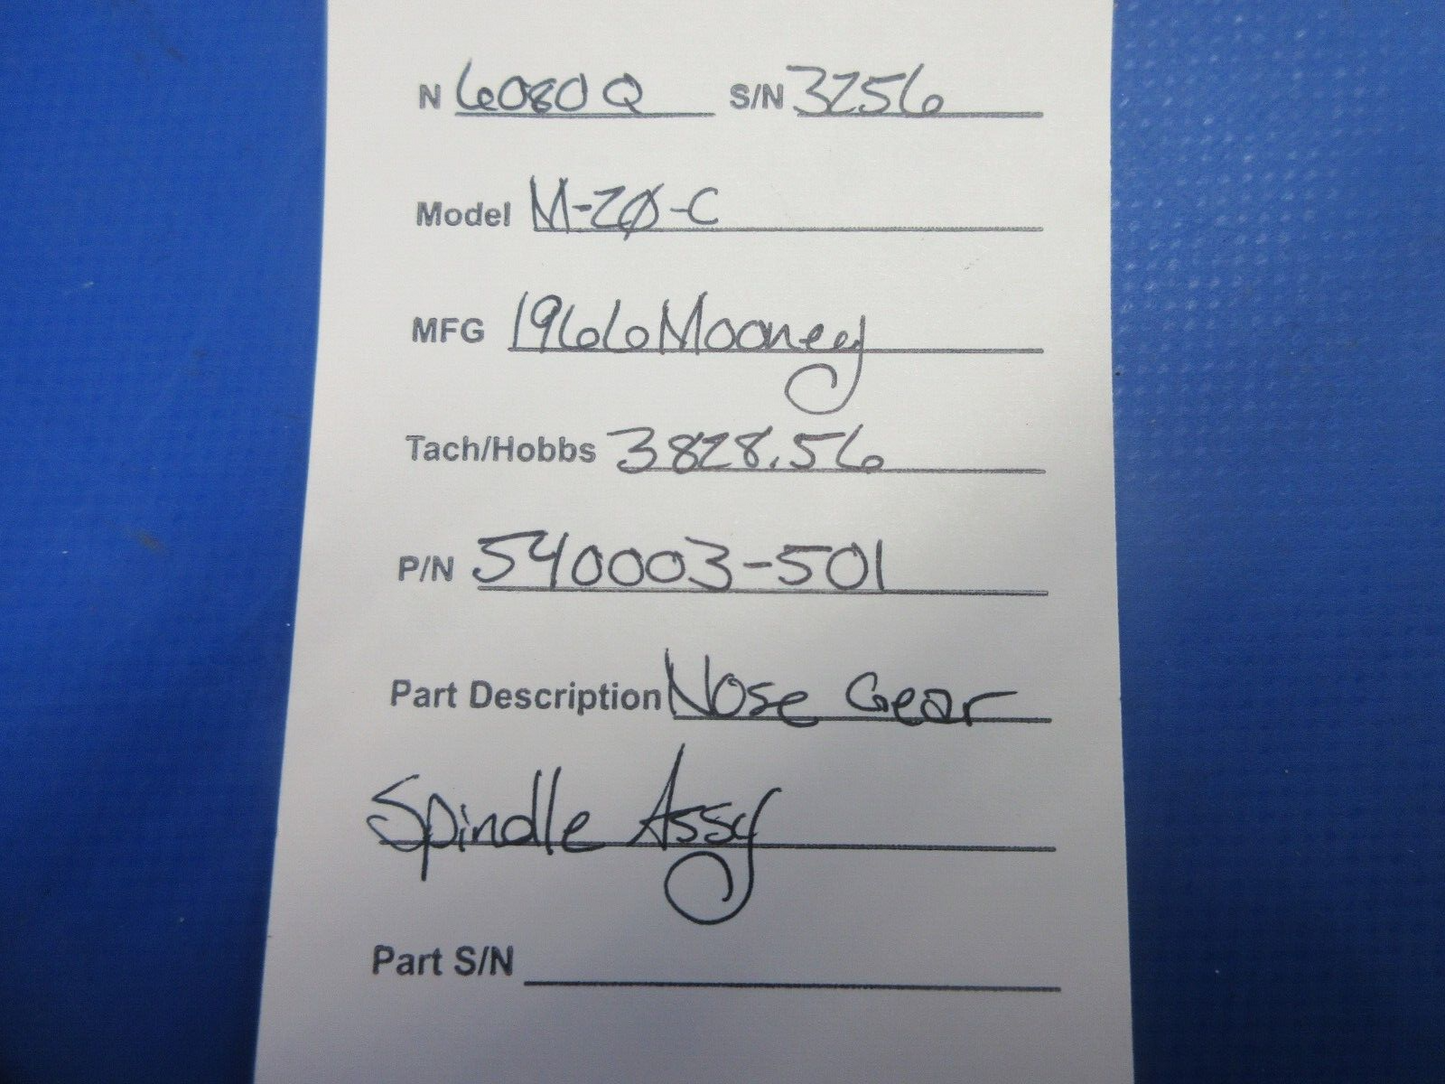 N 6080Q S/N 3256
Model M-20-C
MFG 1966 Mooney
Tach/Hobbs 3828.56
P/N 540003-501
Part Description Nose Gear
Spindle Assy
Part S/N